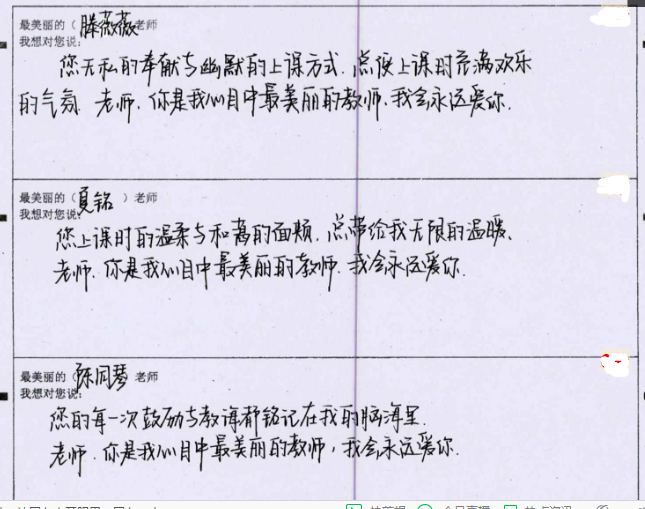 最美丽的（滕薇薇老师
我想对您说：
您无私的奉献与幽默的上课方式，总使上课时充满欢乐
的气氛。老师，你是我心目中最美丽的教师，我会永远爱你。
最美丽的（夏铭）老师
我想对您说：
您上课时的温柔与和蔼的面颊，总带给我无限的温暖、
老师，你是我心目中最美丽的教师，我会永远爱你。
最美丽的（陈同琴 老师
我想对您说：
您的每一次鼓励与教诲都铭记在我的脑海里，
老师，你是我心目中最美丽的教师，我会永远爱你。